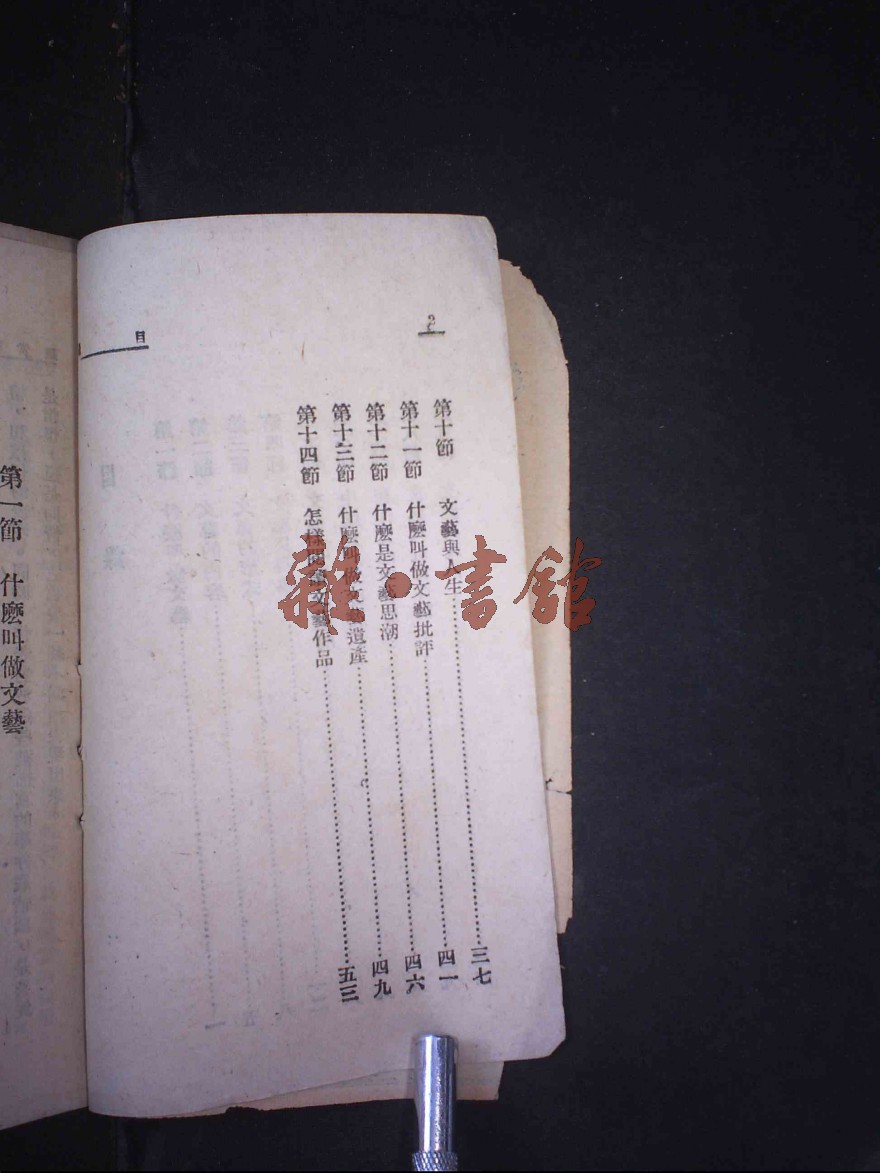 2
目
第十節 文藝與人生 三七
第十一節 什麽叫做文藝批評 四一
第十二節 什麽是文藝思潮 四六
第十三節 什麽叫做文藝遺產 四九
第十四節 怎樣閱讀文藝作品 五三
第一節 什麽叫做文藝
雜·書館